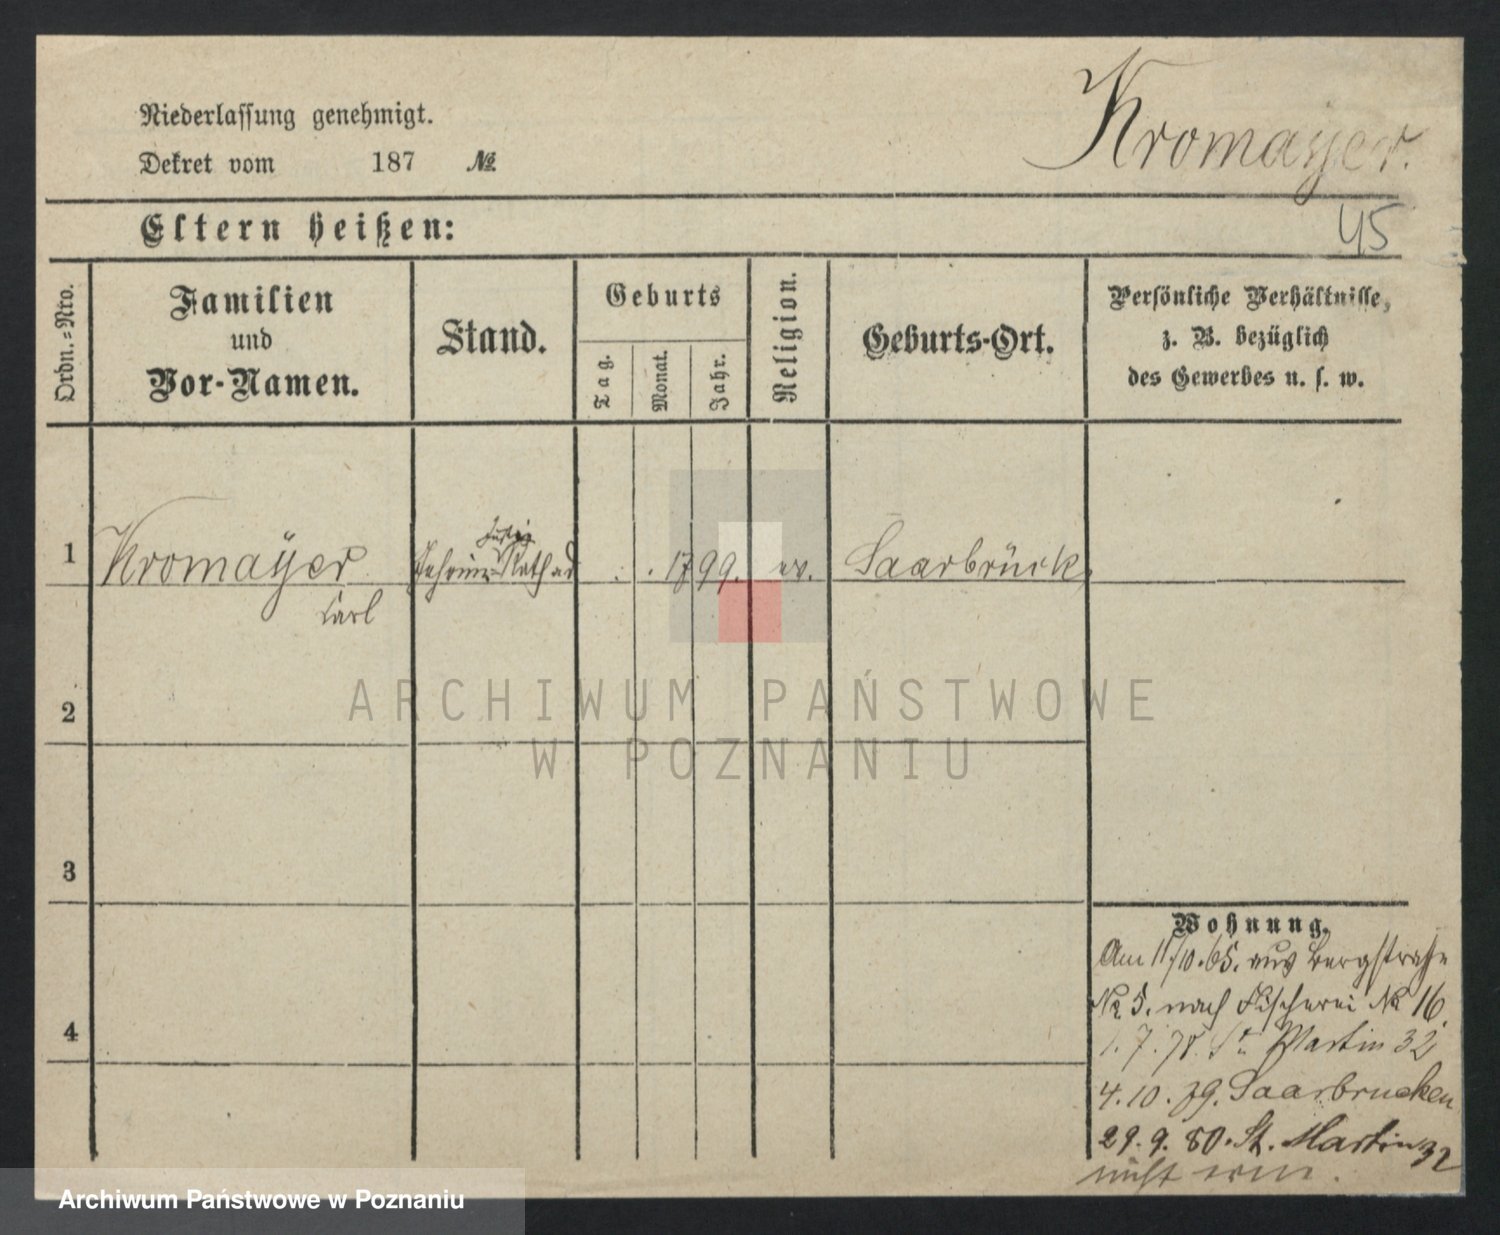 Kromayer.
Niederlassung genehmigt.
Dekret vom 187 №
45
Eltern heißen:
Ordn.=Nro.
Familien
und
Vor-Namen.
Stand.
Geburts
Tag.
Monat.
Jahr.
Religion.
Geburts-Ort.
Persönliche Verhältnisse,
z. B. bezüglich
des Gewerbes u. s. w.
1 Kromaÿer Geheimer Justiz Rath ad . . 1799. ev. Saarbrück
Carl
2
3
4
Wohnung.
Am 11/10.65. aus Bergstraße
No 5. nach Fischerei No 16
1. 7. 78. St. Martin 32
4. 10. 79. Saarbrucken
29. 9. 80. St. Martin 32
nicht erm.
ARCHIWUM PAŃSTWOWE
W POZNANIU
Archiwum Państwowe w Poznaniu